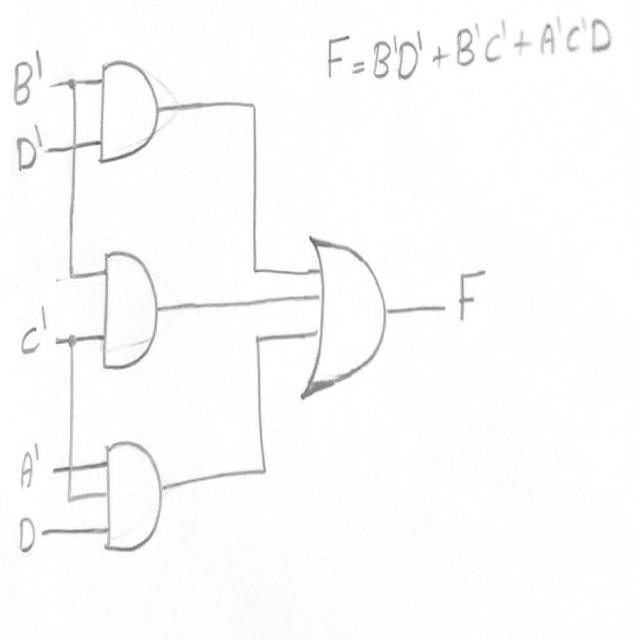 F = B'D' + B'C' + A'C'D
B'
D'
C'
A'
D
F